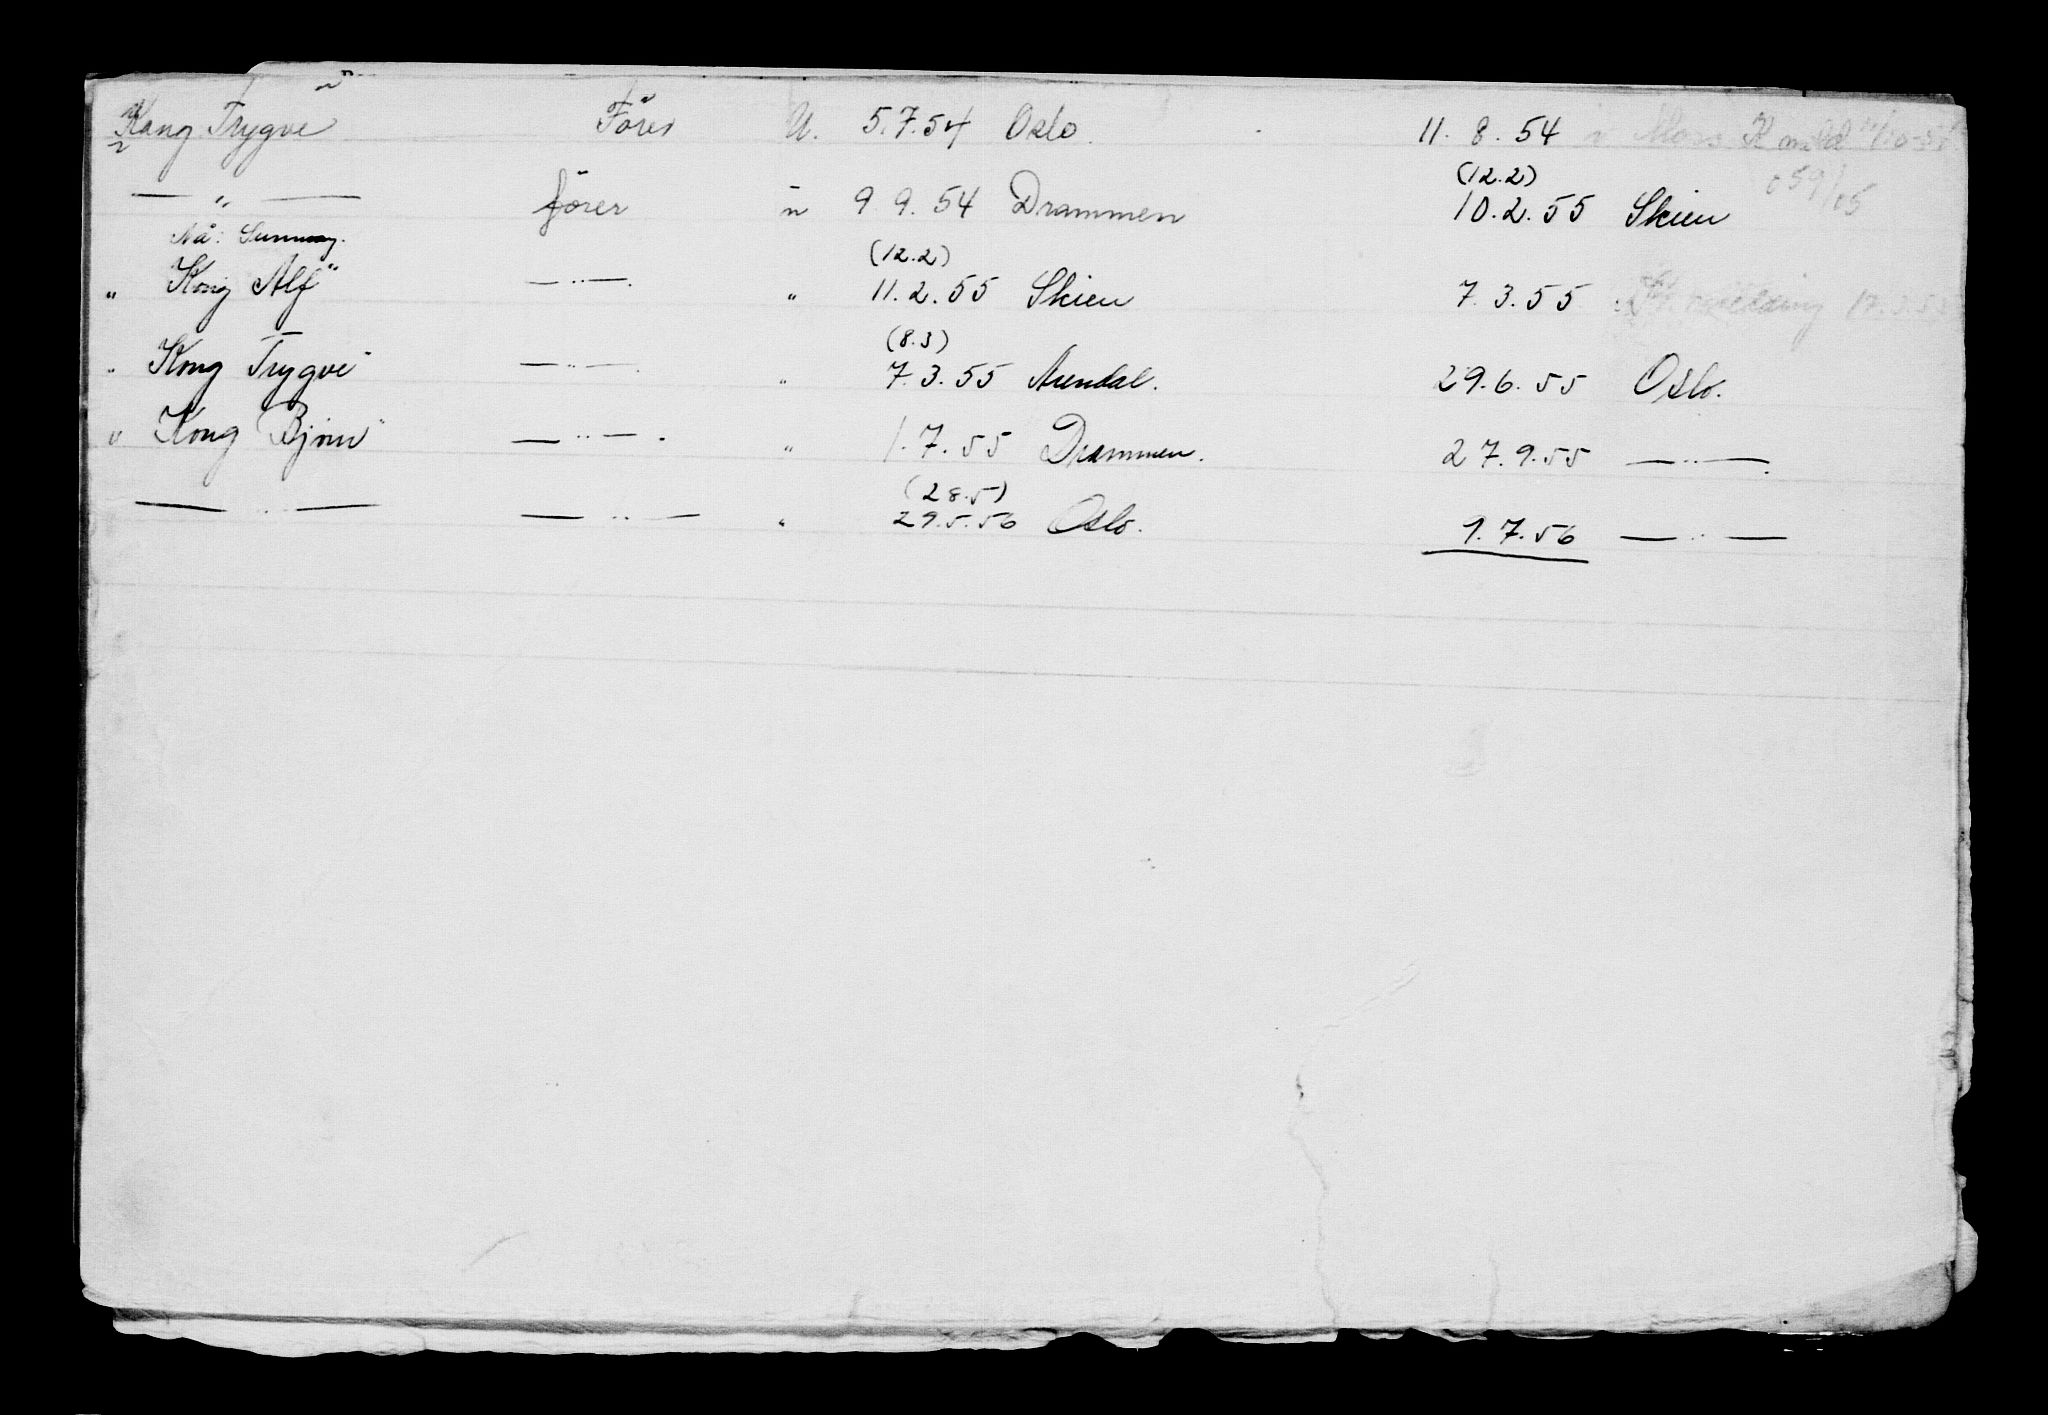 Kong Trygve Fører U. 5.7.54 Oslo. 11. 8. 54
(12.2)
— " — fører " 9 9. 54 Drammen 10.2.55 Skien
Nå: Sunnway.
(12.2)
" Kong Alf" — " — . " 11.2.55 Skien 7.3.55 melding 17.3.55
(8.3)
" Kong Trygve" — " — . " 7.3.55 Arendal. 29.6.55 Oslo.
" Kong Bjørn" — " — . " 1.7.55 Drammen. 27.9.55 — " — .
(28.5)
— " — — " — " 29.5.56 Oslo. 1.7.56 — " —